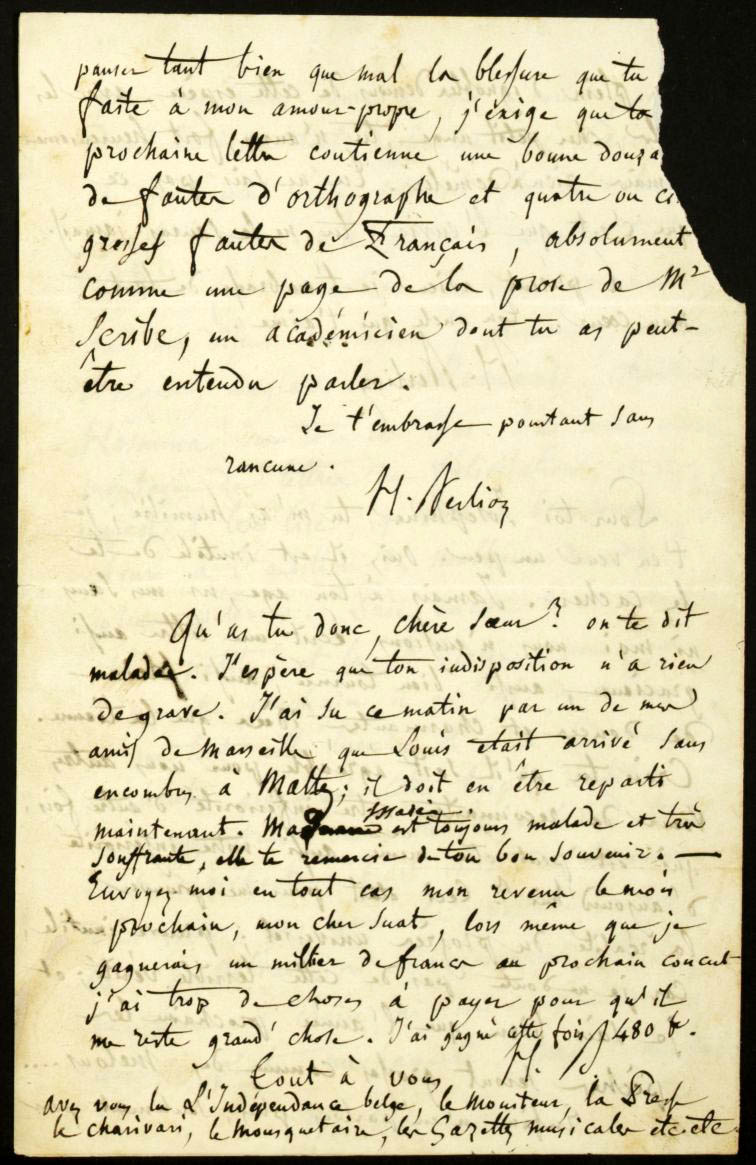 panser tant bien que mal la blessure que tu
faite à mon amour-propre, j'exige que ta
prochaine lettre contienne une bonne douza
de fautes d'orthographe et quatre ou ci
grosses fautes de Français, absolument
comme une page de la prose de Mr
Scribe, un académicien dont tu as peut-
être entendu parler.
Je t'embrasse pourtant sans
rancune.
H. Berlioz
Qu'as tu donc, chère sœur? on te dit
malade. J'espère que ton indisposition n'a rien
de grave. J'ai su ce matin par un de mes
amis de Marseille que Louis etait arrivé sans
encombres à Malte; il doit en être reparti
maintenant. Marie est toujours malade et très
souffrante, elle te remercie de ton bon souvenir. —
Envoyez moi en tout cas mon revenu le mois
prochain, mon cher Suat, lors même que je
gagnerais un millier de francs au prochain concert
j'ai trop de choses à payer pour qu'il
me reste grand' chose. J'ai gagné cette fois 1480 f.
Tout à vous H.
avez vous lu L'Indépendance belge, le Moniteur, la Presse
le charivari, le Mousquetaire, les Gazettes musicales etc etc